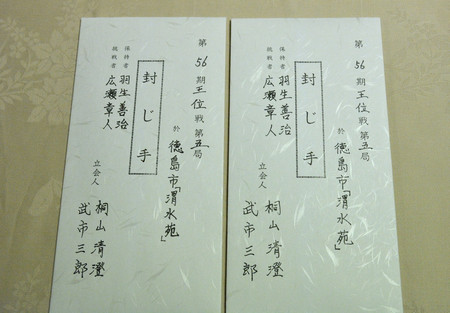 第56期王位戦第五局
於 徳島市「渭水苑」
封じ手
保持者 羽生善治
挑戦者 広瀬章人
立会人 桐山清澄
武市三郎
第56期王位戦第五局
於 徳島市「渭水苑」
封じ手
保持者 羽生善治
挑戦者 広瀬章人
立会人 桐山清澄
武市三郎